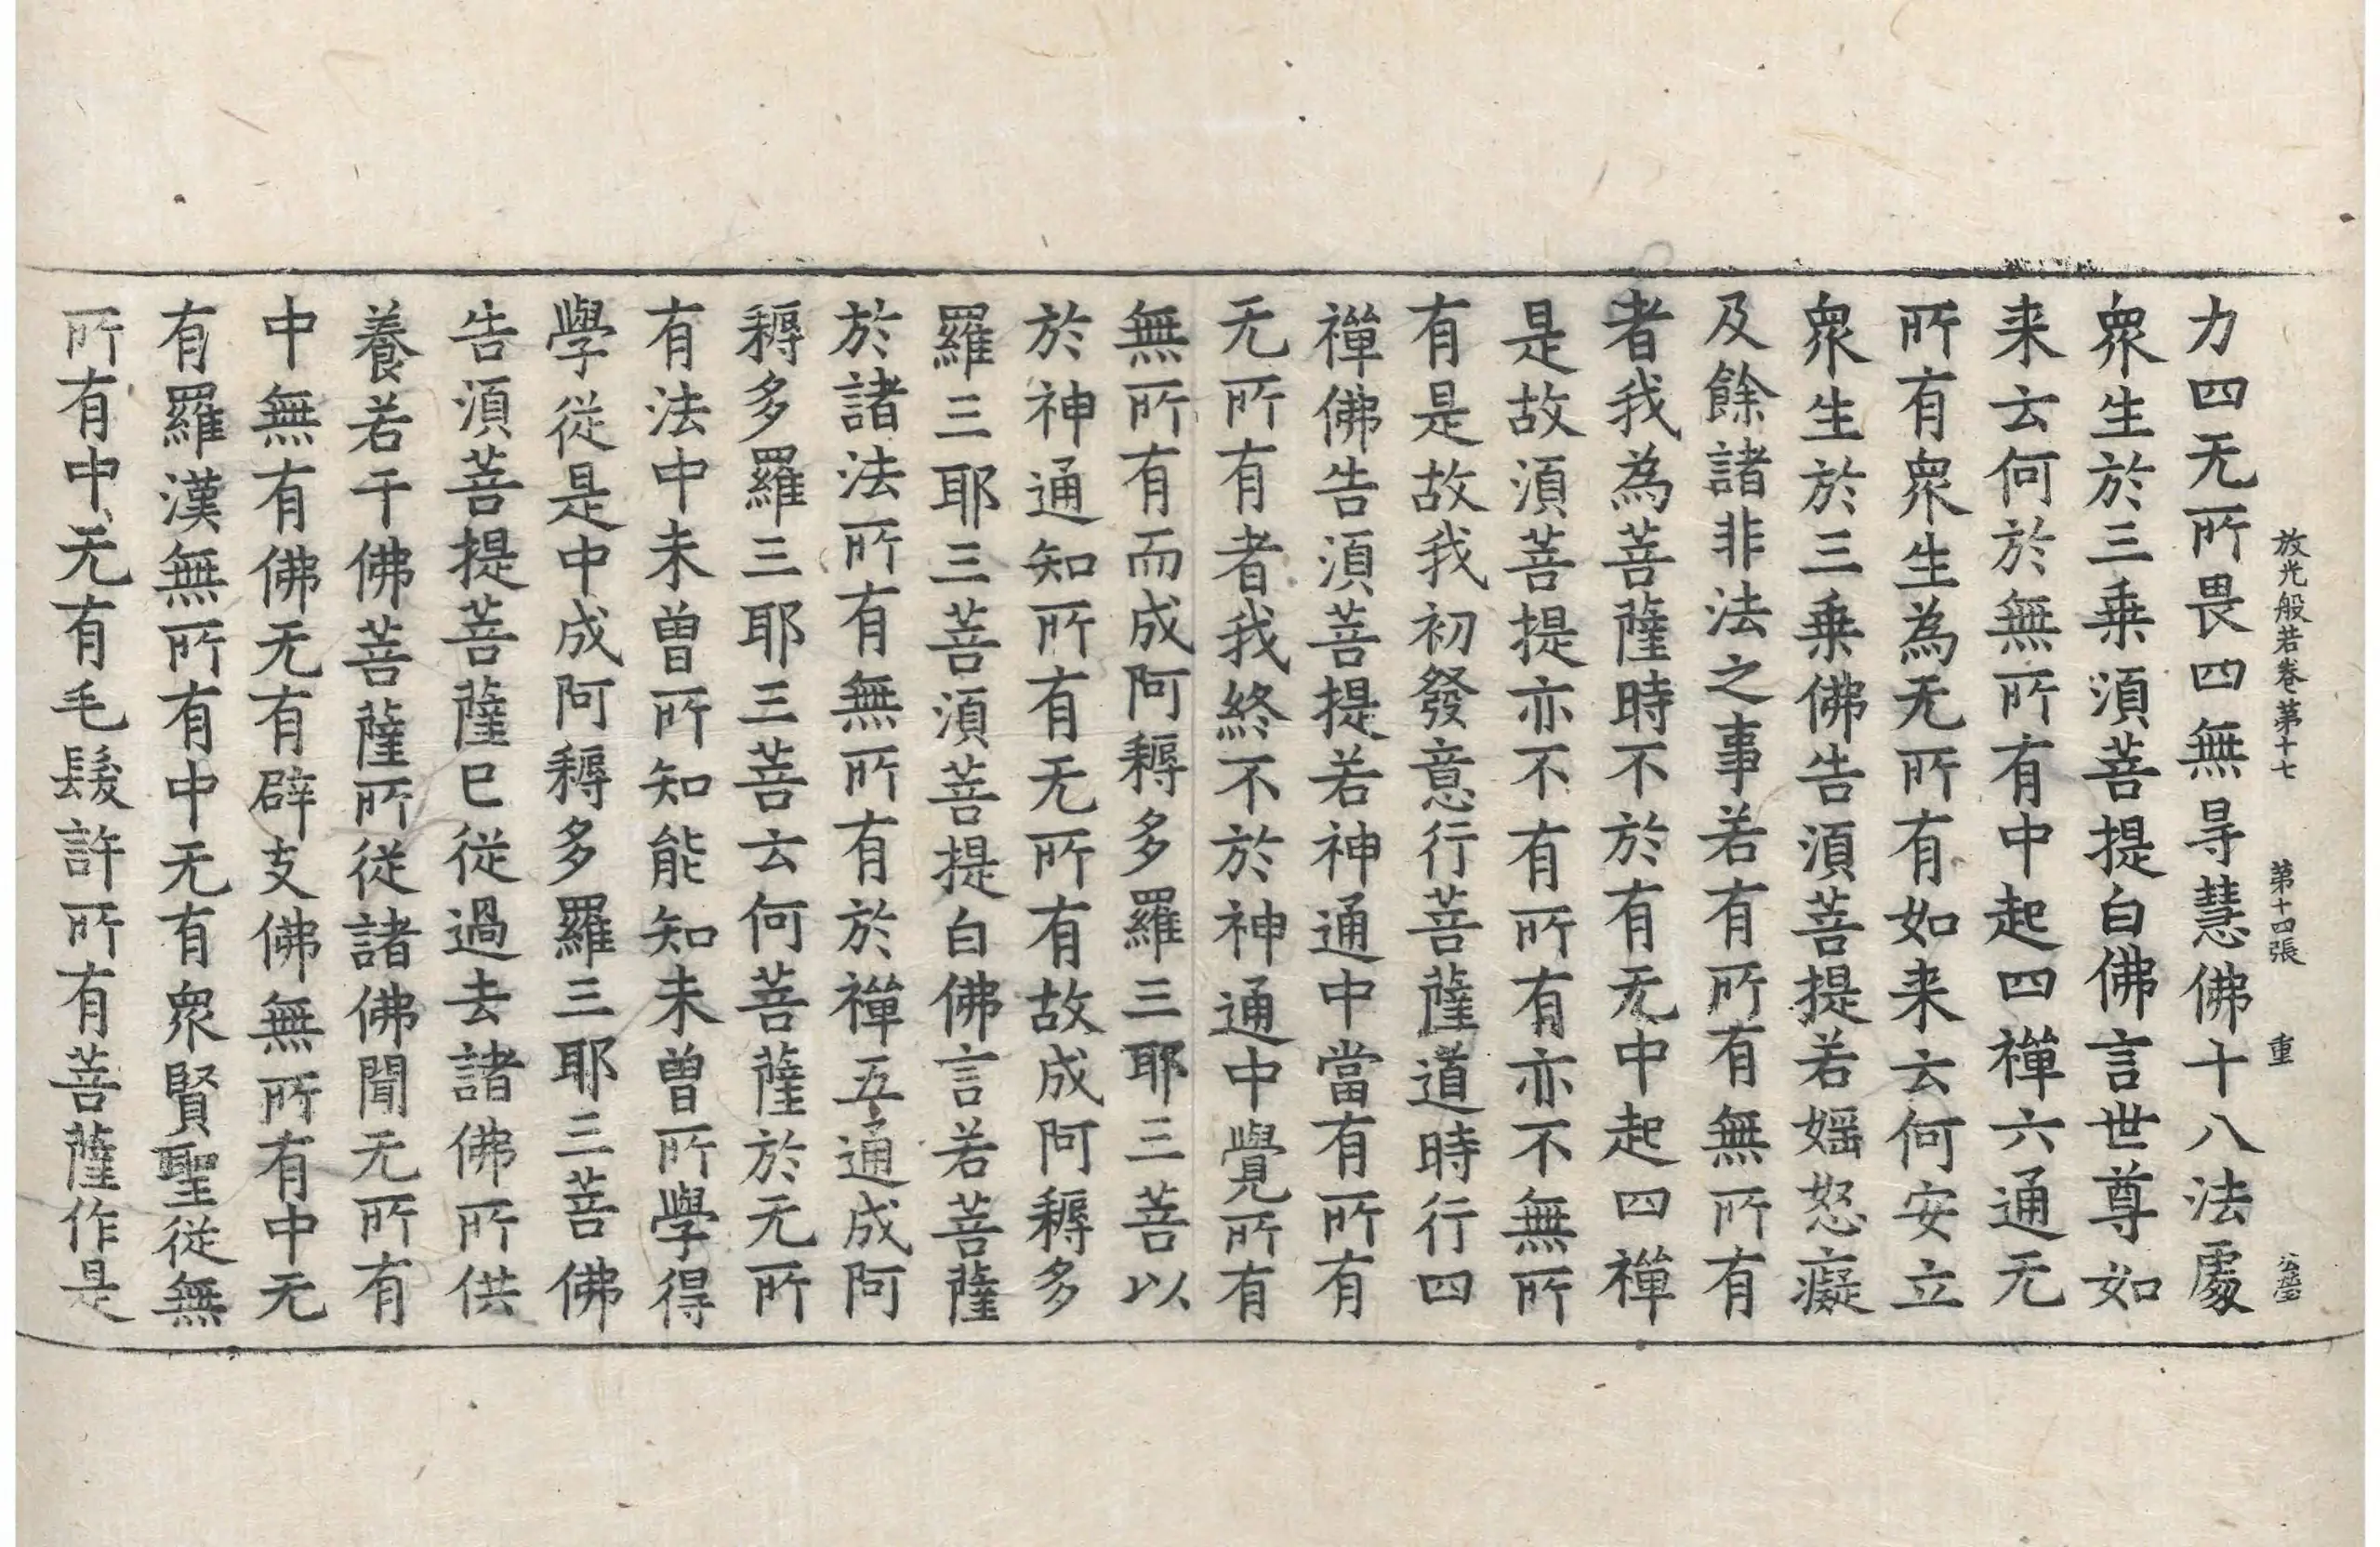 放光般若卷第十七 第十四張 重
力四无所畏四無㝵慧佛十八法處
衆生於三乗湏菩提白佛言世尊如
来云何於無所有中起四禪六通无
所有衆生為无所有如来云何安立
衆生於三乗佛告湏菩提若婬怒癡
及餘諸非法之事若有所有無所有
者我為菩薩時不於有无中起四禪
是故湏菩提亦不有所有亦不無所
有是故我初發意行菩薩道時行四
禪佛告湏菩提若神通中當有所有
无所有者我終不於神通中覺所有
無所有而成阿耨多羅三耶三菩以
於神通知所有无所有故成阿耨多
羅三耶三菩湏菩提白佛言若菩薩
於諸法所有無所有於禪五通成阿
耨多羅三耶三菩云何菩薩於无所
有法中未曽所知能知未曽所學得
學從是中成阿耨多羅三耶三菩佛
告湏菩提菩薩已從過去諸佛所供
養若干佛菩薩所從諸佛聞无所有
中無有佛无有辟支佛無所有中无
有羅漢無所有中无有衆賢聖從無
所有中无有毛髮許所有菩薩作是